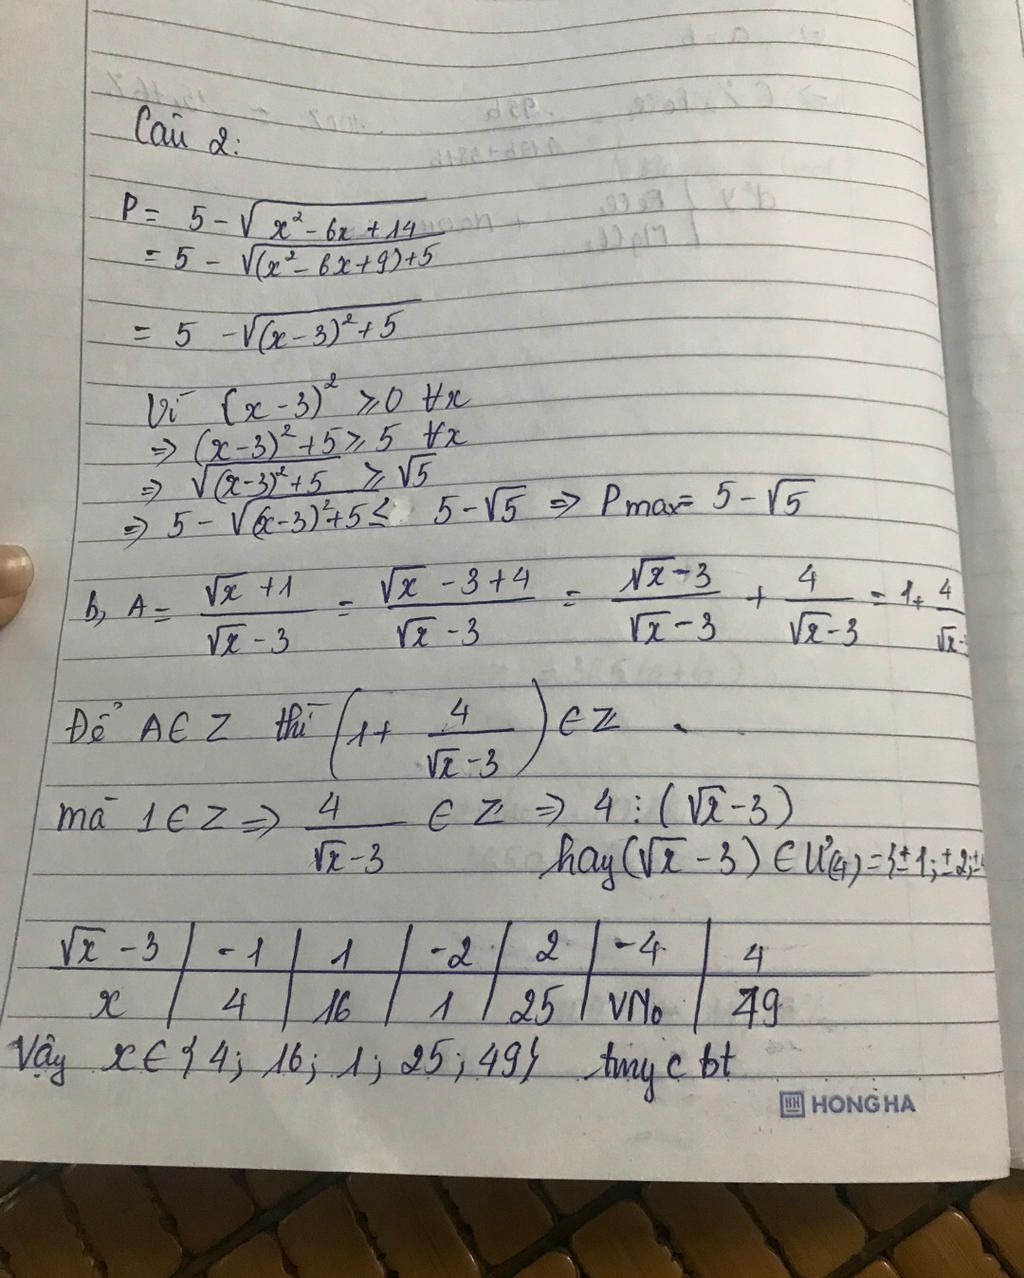 Câu 2:
P = 5 - √(x² - 6x + 14)
= 5 - √((x² - 6x + 9) + 5)
= 5 - √((x - 3)² + 5)
Vì (x - 3)² ≥ 0 ∀x
⇒ (x - 3)² + 5 ≥ 5 ∀x
⇒ √((x - 3)² + 5) ≥ √5
⇒ 5 - √((x - 3)² + 5) ≤ 5 - √5 ⇒ P max = 5 - √5
b, A = (√x + 1)/(√x - 3) = (√x - 3 + 4)/(√x - 3) = (√x - 3)/(√x - 3) + 4/(√x - 3) = 1 + 4/(√x -
Để A ∈ Z thì (1 + 4/(√x - 3)) ∈ Z
mà 1 ∈ Z ⇒ 4/(√x - 3) ∈ Z ⇒ 4 ⋮ (√x - 3)
hay (√x - 3) ∈ Ư(4) = {±1; ±2; ±4
√x - 3 | -1 | 1 | -2 | 2 | -4 | 4
x | 4 | 16 | 1 | 25 | VNo | 49
Vậy x ∈ {4; 16; 1; 25; 49} tmycbt
HONG HA